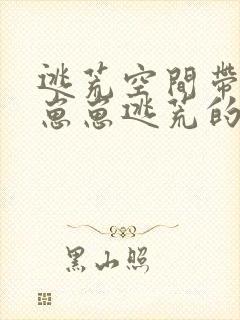 逃荒空間帶
崽崽逃荒的
黑山照